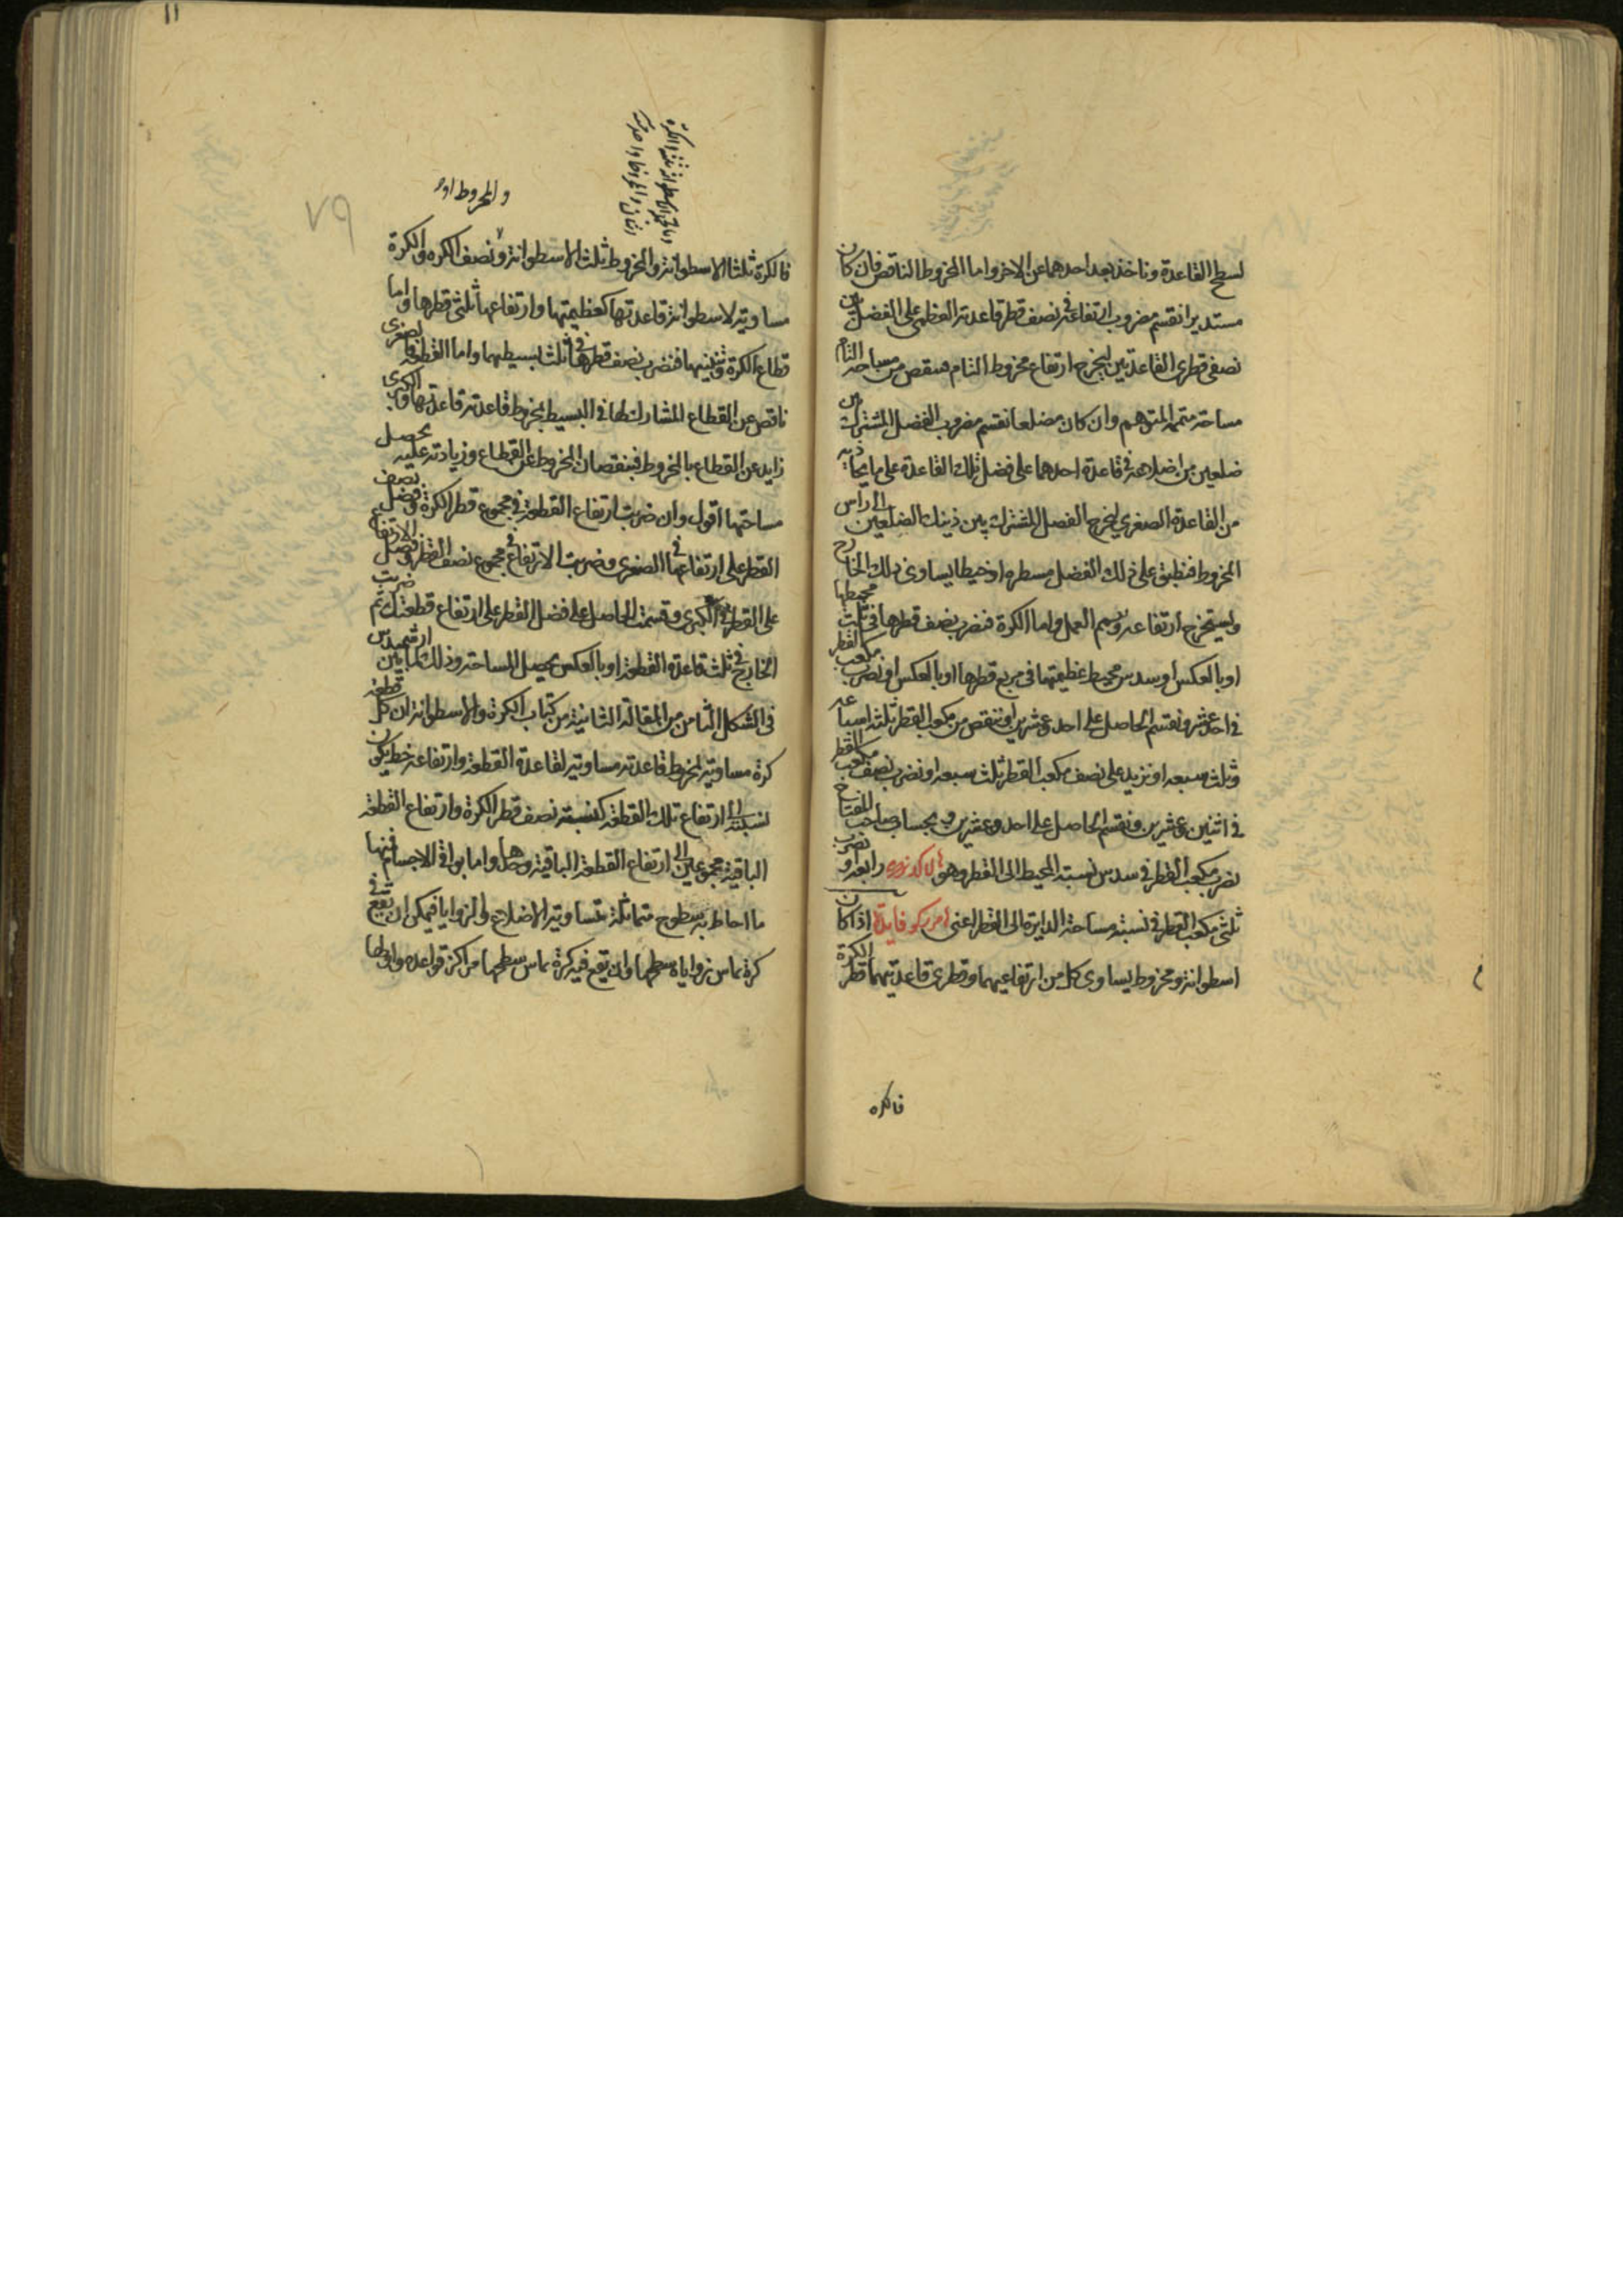 لسطح القاعدة وناخذ بعد احدهما عن الاخر واما المخروط الناقص فان كان
مستديرا نقسم مضروب ارتفاعه في نصف قطر قاعدته العظمى على الفضل بين
نصفي قطري القاعدتين ليخرج ارتفاع مخروط التام فننقص من مساحة التام
مساحة متممه المتوهم وان كان مضلعا نقسم مضروب الفصل المشترك بين
ضلعين من اضلاعه في قاعدة احدهما على فضل تلك القاعدة على ما يحاذيه
من القاعدة الصغرى ليخرج الفصل المشترك بين ذينك الضلعين الى راس
المخروط فنطبق على ذلك الفصل مسطرة او خيطا يساوي ذلك الخارج
ويستخرج ارتفاعه ويتم العمل واما الكرة فنضرب نصف قطرها في ثلث محيطها
او بالعكس او سدس محيط عظيمتها في مربع قطرها او بالعكس او نضرب مكعب القطر
في احد عشر ونقسم الحاصل على احد وعشرين او ننقص من مكعب القطر ثلثة اسباعه
وثلث سبعه او نزيد على نصف مكعب القطر ثلث سبعه او نضرب نصف مكعب القطر
في اثنين وعشرين ونقسم الحاصل على احد وعشرين وبحساب صاحب المفتاح
نضرب مكعب القطر في سدس نسبة المحيط الى القطر وهو رابعة او نضرب
ثلثي مكعب القطر في نسبة مساحة الدايرة الى القطر اعنى فايدة اذا كان
اسطوانة ومخروط يساوي كل من ارتفاعيهما وقطري قاعدتيهما قطر الكرة
فالكره
١١
٧٩
والمخروط
فالكرة ثلثا الاسطوانة والمخروط ثلث الاسطوانة ونصف الكره والكرة
مساوية لاسطوانة قاعدتها كعظيمتها وارتفاعها ثلثي قطرها واما
قطاع الكرة فنضرب نصف قطرها في ثلث بسيطهما واما القطعة فالصغرى
ناقص عن القطاع المشارك لها في البسيط بمخروط قاعدته قاعدتها والكبرى
زايد عن القطاع بالمخروط فبنقصان المخروط عن القطاع وزيادته عليه يحصل
مساحتها اقول وان ضربت ارتفاع القطعة في مجموع قطر الكرة وفضل نصف
القطر على ارتفاعها في الصغرى وضربت الارتفاع في مجموع نصف القطر وفضل الارتفاع
على القطر في الكبرى وقسمت الحاصل على فضل القطر على ارتفاع قطعتك ثم ضربت
الخارج في ثلث قاعدة القطعة او بالعكس يحصل المساحة وذلك لما بين ارشميدس
في الشكل الثامن من المقالة الثانية من كتاب الكرة والاسطوانة ان كل قطعة
كرة مساوية لمخروط قاعدته مساوية لقاعدة القطعة وارتفاعه خط يكون
نسبته الى ارتفاع تلك القطعة كنسبة نصف قطر الكرة وارتفاع القطعة
الباقية مجموعين الى ارتفاع القطعة الباقية وحدها واما بواقي الاجسام فمنها
ما احاط به سطوح متماثلة متساوية الاضلاع والزوايا فيمكن ان يقع في
كرة يماس زواياه سطحها وان يقع فيه كرة يماس سطحها مراكز قواعده